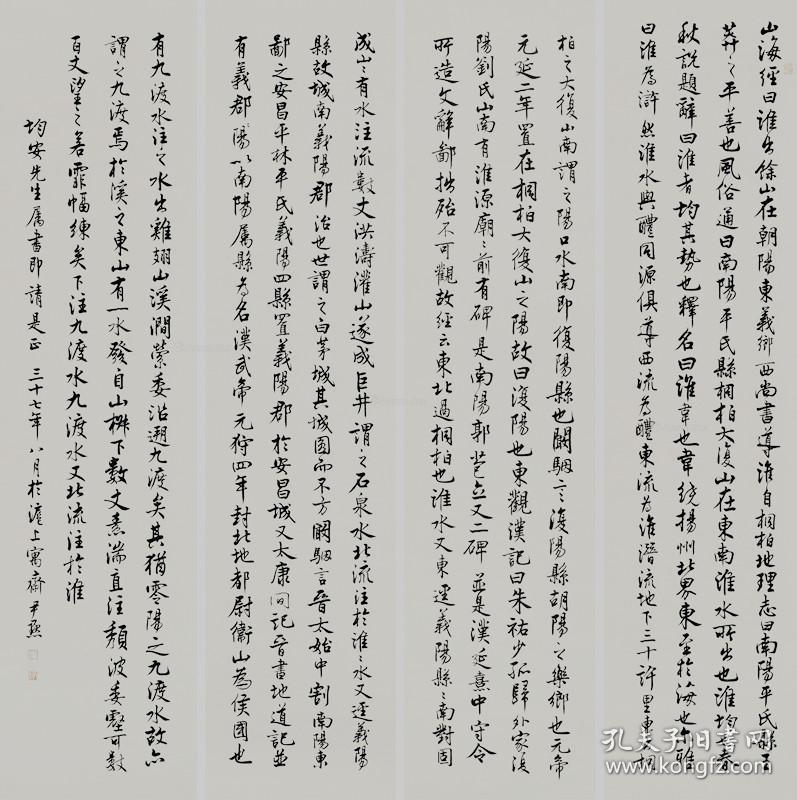 山海經曰淮出餘山在朝陽東義鄉西尚書導淮自桐柏地理志曰南陽平氏縣王
莽之平善也風俗通曰南陽平氏縣桐柏大復山在東南淮水所出也淮均也春
秋說題辭曰淮者均其勢也釋名曰淮韋也韋繞揚州北界東至於海也爾雅
曰淮為滸然淮水與醴同源俱導西流為醴東流為淮潛流地下三十許里東出桐
柏之大復山南謂之陽口水南即復陽縣也闞駰言復陽縣胡陽之樂鄉也元帝
元延二年置在桐柏大復山之陽故曰復陽也東觀漢記曰朱祐少孤歸外家復
陽劉氏山南有淮源廟廟前有碑是南陽郭苞立又二碑並是漢延熹中守令
所造文辭鄙拙殆不可觀故經云東北過桐柏也淮水又東逕義陽縣縣南對固
成山山有水注流數丈洪濤灌山遂成巨井謂之石泉水北流注於淮淮水又逕義陽
縣故城南義陽郡治也世謂之白茅城其城圓而不方闞駰言晉太始中割南陽東
鄙之安昌平林平氏義陽四縣置義陽郡於安昌城又太康同記晉書地道記並
有義郡陽以南陽屬縣為名漢武帝元狩四年封北地都尉衛山為侯國也
有九渡水注之水出雞翅山溪澗縈委沿遡九渡矣其猶零陽之九渡水故亦
謂之九渡焉於溪之東山有一水發自山椒下數丈素湍直注頹波委壑可數
百丈望之若霏幅練矣下注九渡水九渡水又北流注於淮
均安先生属書即請是正 三十七年八月於滬上寓齋 尹默
孔夫子旧书网
www.kongfz.com